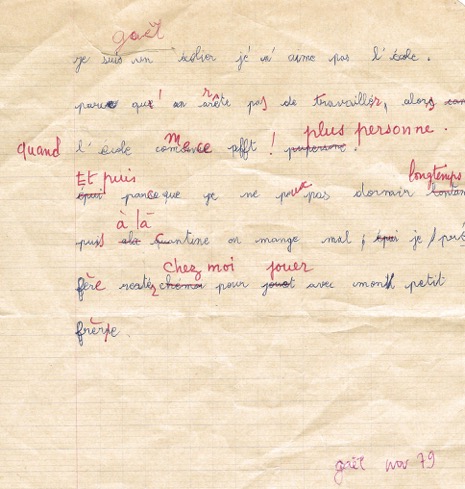 gaël
je suis un écolier je n'aime pas l'école.
parce qu'on arrête pas de travailler, alors
quand l'école commence pfft ! plus personne.
Et puis parceque je ne peux pas dormir longtemps
puis à la cantine on mange mal, je
rester chez moi pour jouer avec mon petit
frère.
gaël nov 79